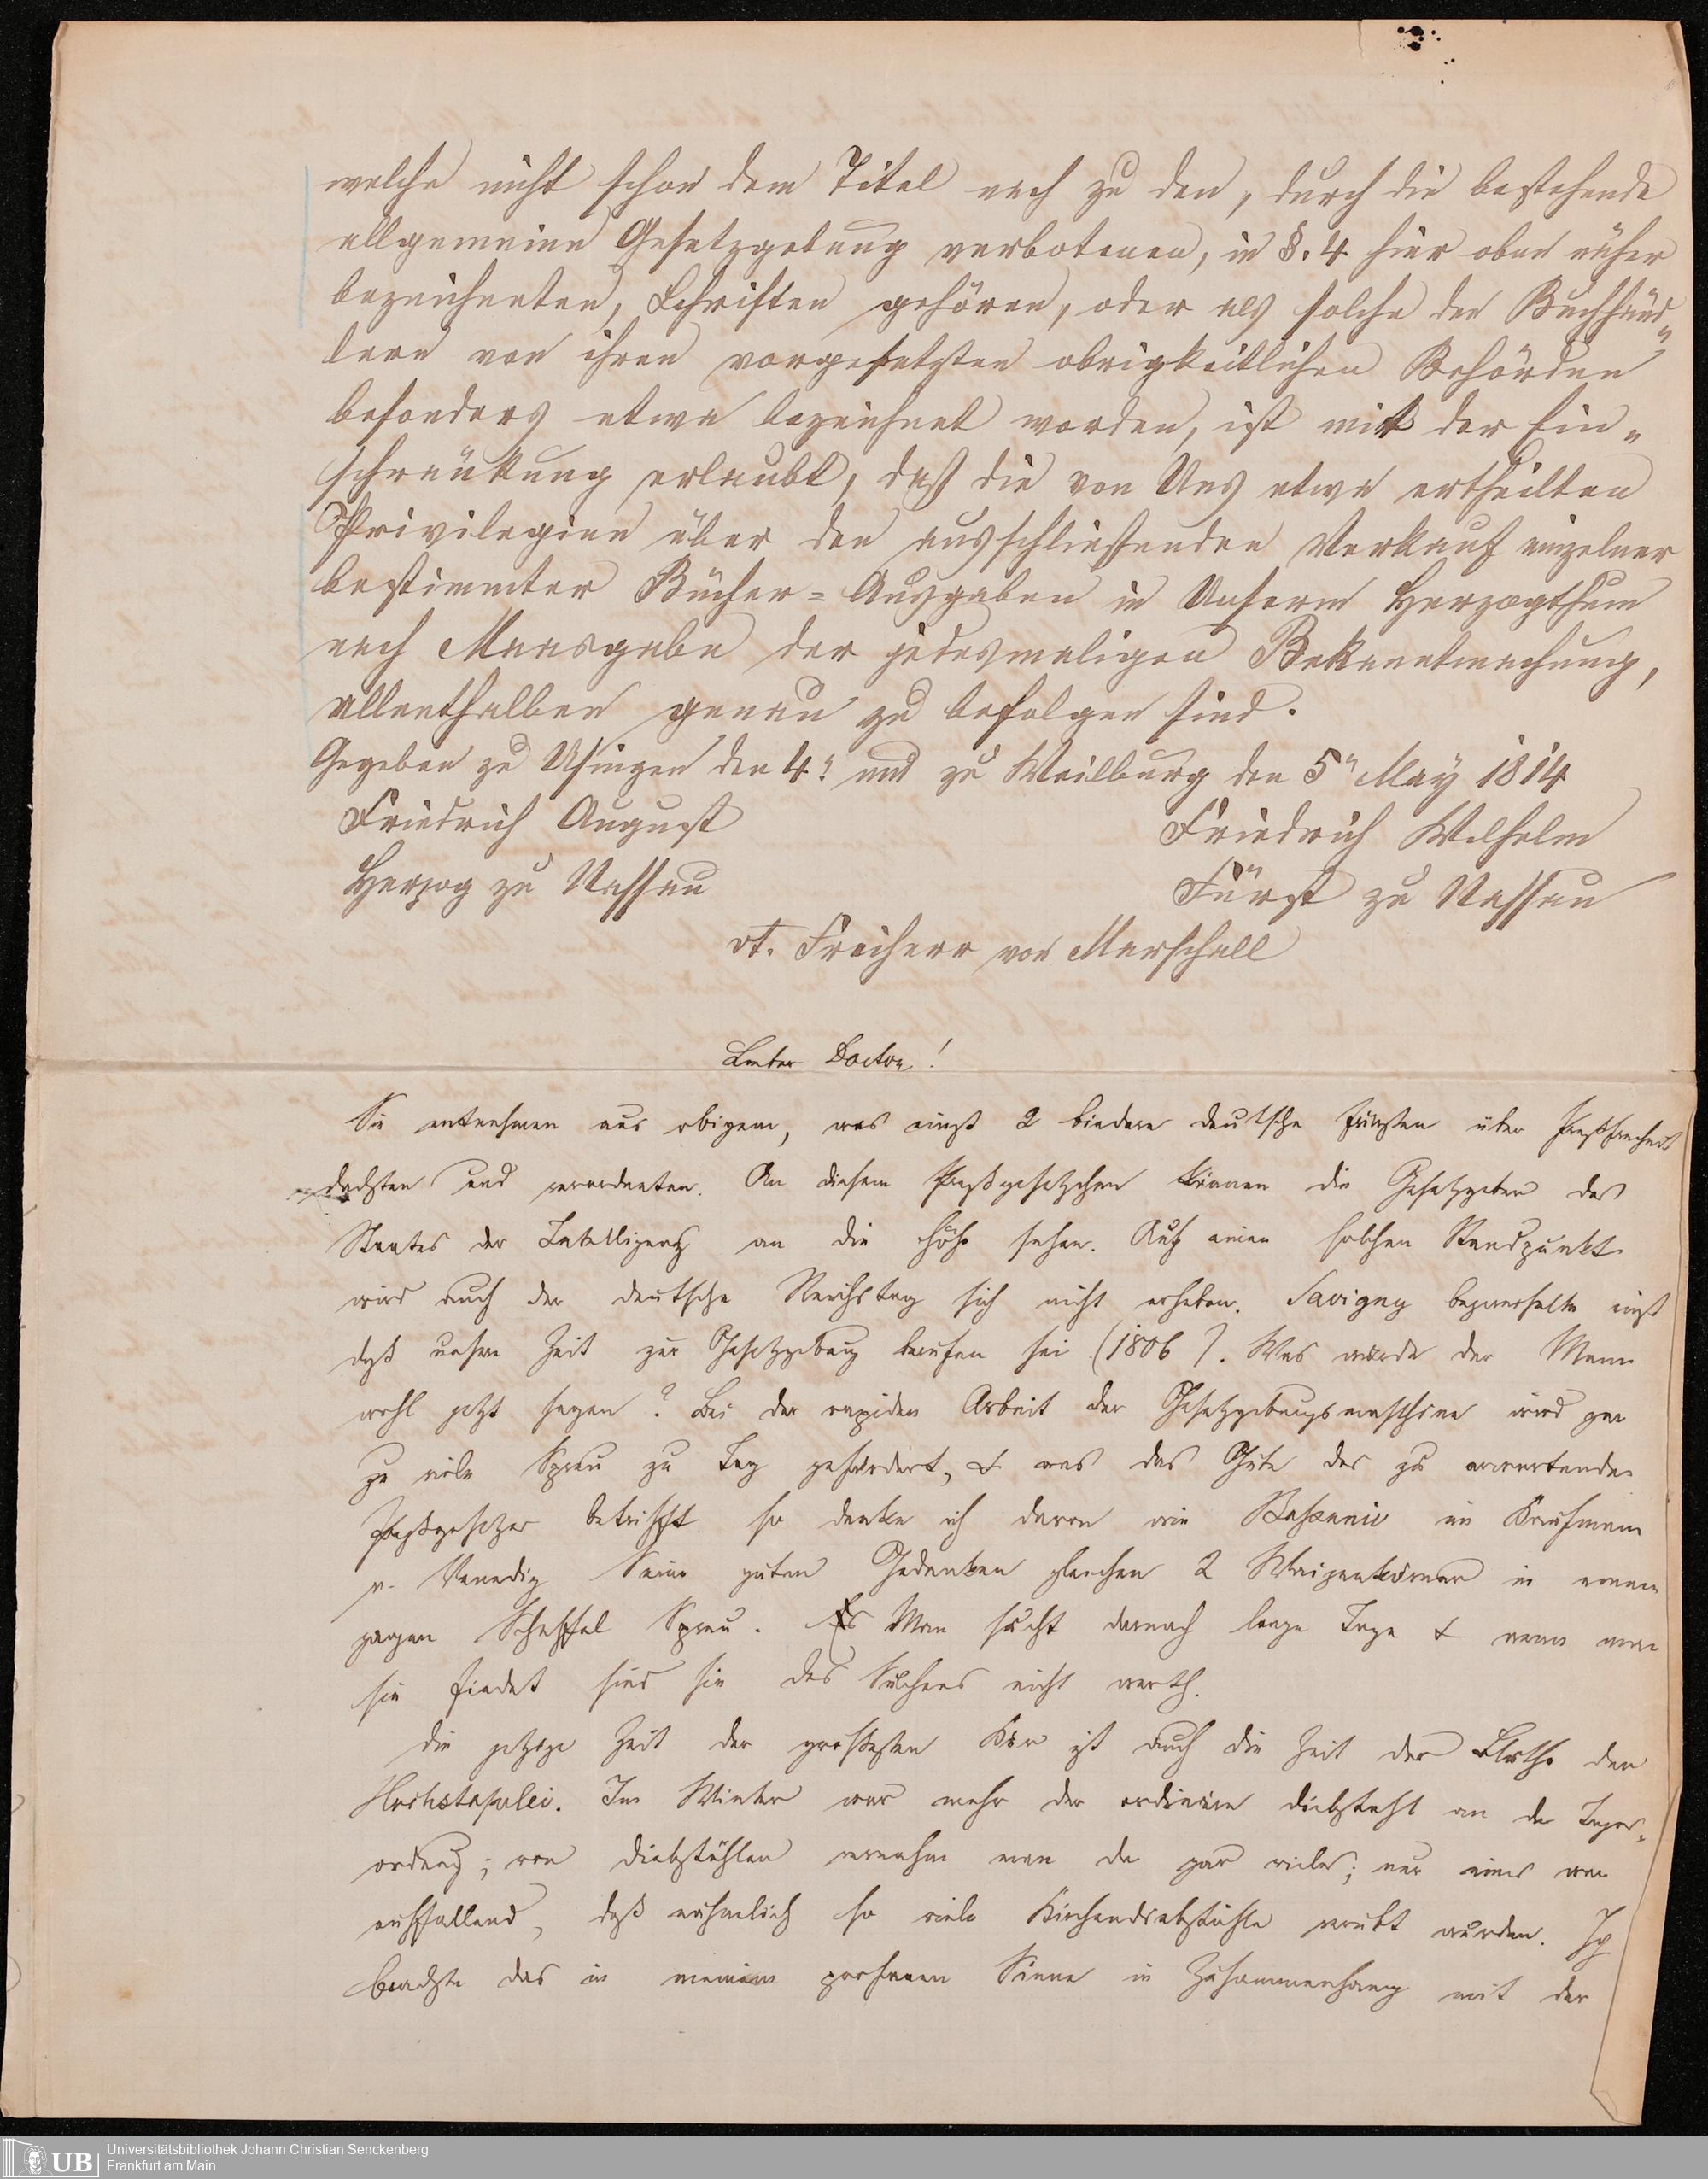 welche nicht schon dem Titel nach zu den, durch die bestehende
allgemeine Gesetzgebung verbotenen, in §. 4 hier oben näher
bezeichneten, Schriften gehören, oder als solche den Buchhänd„
lern von ihren vorgesetzten obrigkeitlichen Behörden
besonders etwa bezeichnet worden, ist mit der Ein„
schränkung erlaubt, daß die von Uns etwa ertheilten
Privilegien über den ausschliessenden Verkauf einzelner
bestimmter Bücher=Ausgaben in Unserm Herzogthum
nach Maasgabe der jedesmaligen Bekanntmachung,
allenthalben genau zu befolgen sind.
Gegeben zu Usingen den 4n und zu Weilburg den 5n May 1814
Friedrich August
Friedrich Wilhelm
Herzog zu Nassau
Fürst zu Nassau
vt. Freiherr von Marschall
Lieber Doctor!
Sie entnehmen aus obigem, was einst 2 biedere deutsche Fürsten über Preßfreiheit
dachten und verordneten. An diesem Preßgesetzchen können die Gesetzgeber des
Staates der Intelligenz an die Höhe sehen. Auf einen solchen Standpunkt
wird auch der deutsche Reichstag sich nicht erheben. Savigny bezweifelte einst
daß unsere Zeit zur Gesetzgebung berufen sei (1806). Was würde der Mann
wohl jetzt sagen? Bei der rapiden Arbeit der Gesetzgebungsmaschine wird gar
zu viele Spreu zu Tag gefördert, & was das Gute des zu erwartenden
Preßgesetzes betrifft so denke ich davon wie Bassanio im Kaufmann
v. Venedig Seine guten Gedanken gleichen 2 Waizenkörner in einem
ganzen Scheffel Spreu. Man sucht darnach lange Tage & wenn man
sie findet sind sie des Suchens nicht werth.
Die jetzige Zeit der großesten Kur ist auch die Zeit der Blüthe der
Hochstapelei. Im Winter war mehr der ordinäre Diebstahl an der Tages„
ordnung; von Diebstählen vernahm man da gar vieles; nur eines war
auffallend, daß nähmlich so viele Kirchendiebstähle verübt wurden. Ich
brachte das in meinem profanen Sinne in Zusammenhang mit der
Universitätsbibliothek Johann Christian Senckenberg
UB Frankfurt am Main